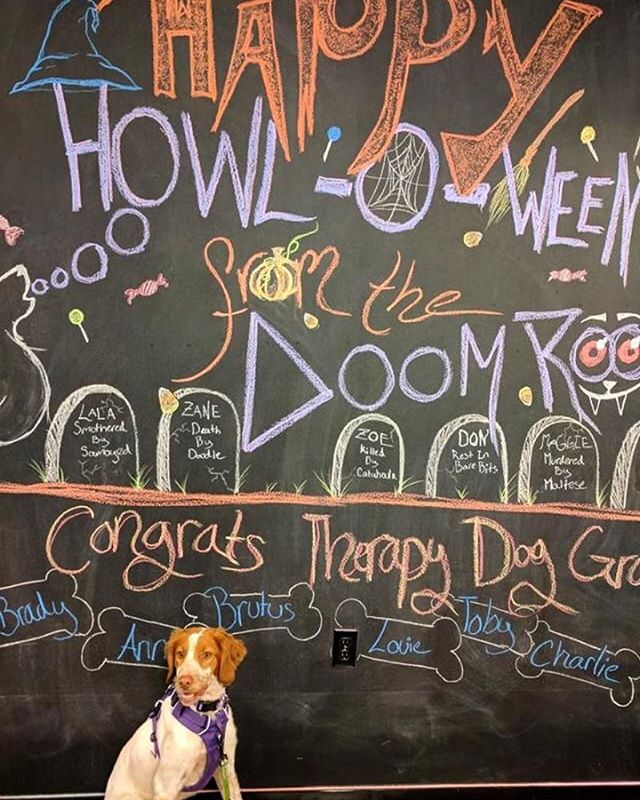 HAPPY
HOWL-O-WEEN
from the
DOOM ROO
LALA
Smothered
By
ZANE
Death
By
Doodle
ZOE
Killed
By
Catahoula
DON
Rest In
Bare Bits
MAGGIE
Murdered
By
Maltese
Congrats Therapy Dog Gra
Brady
Ann
Brutus
Louie
Toby
Charlie